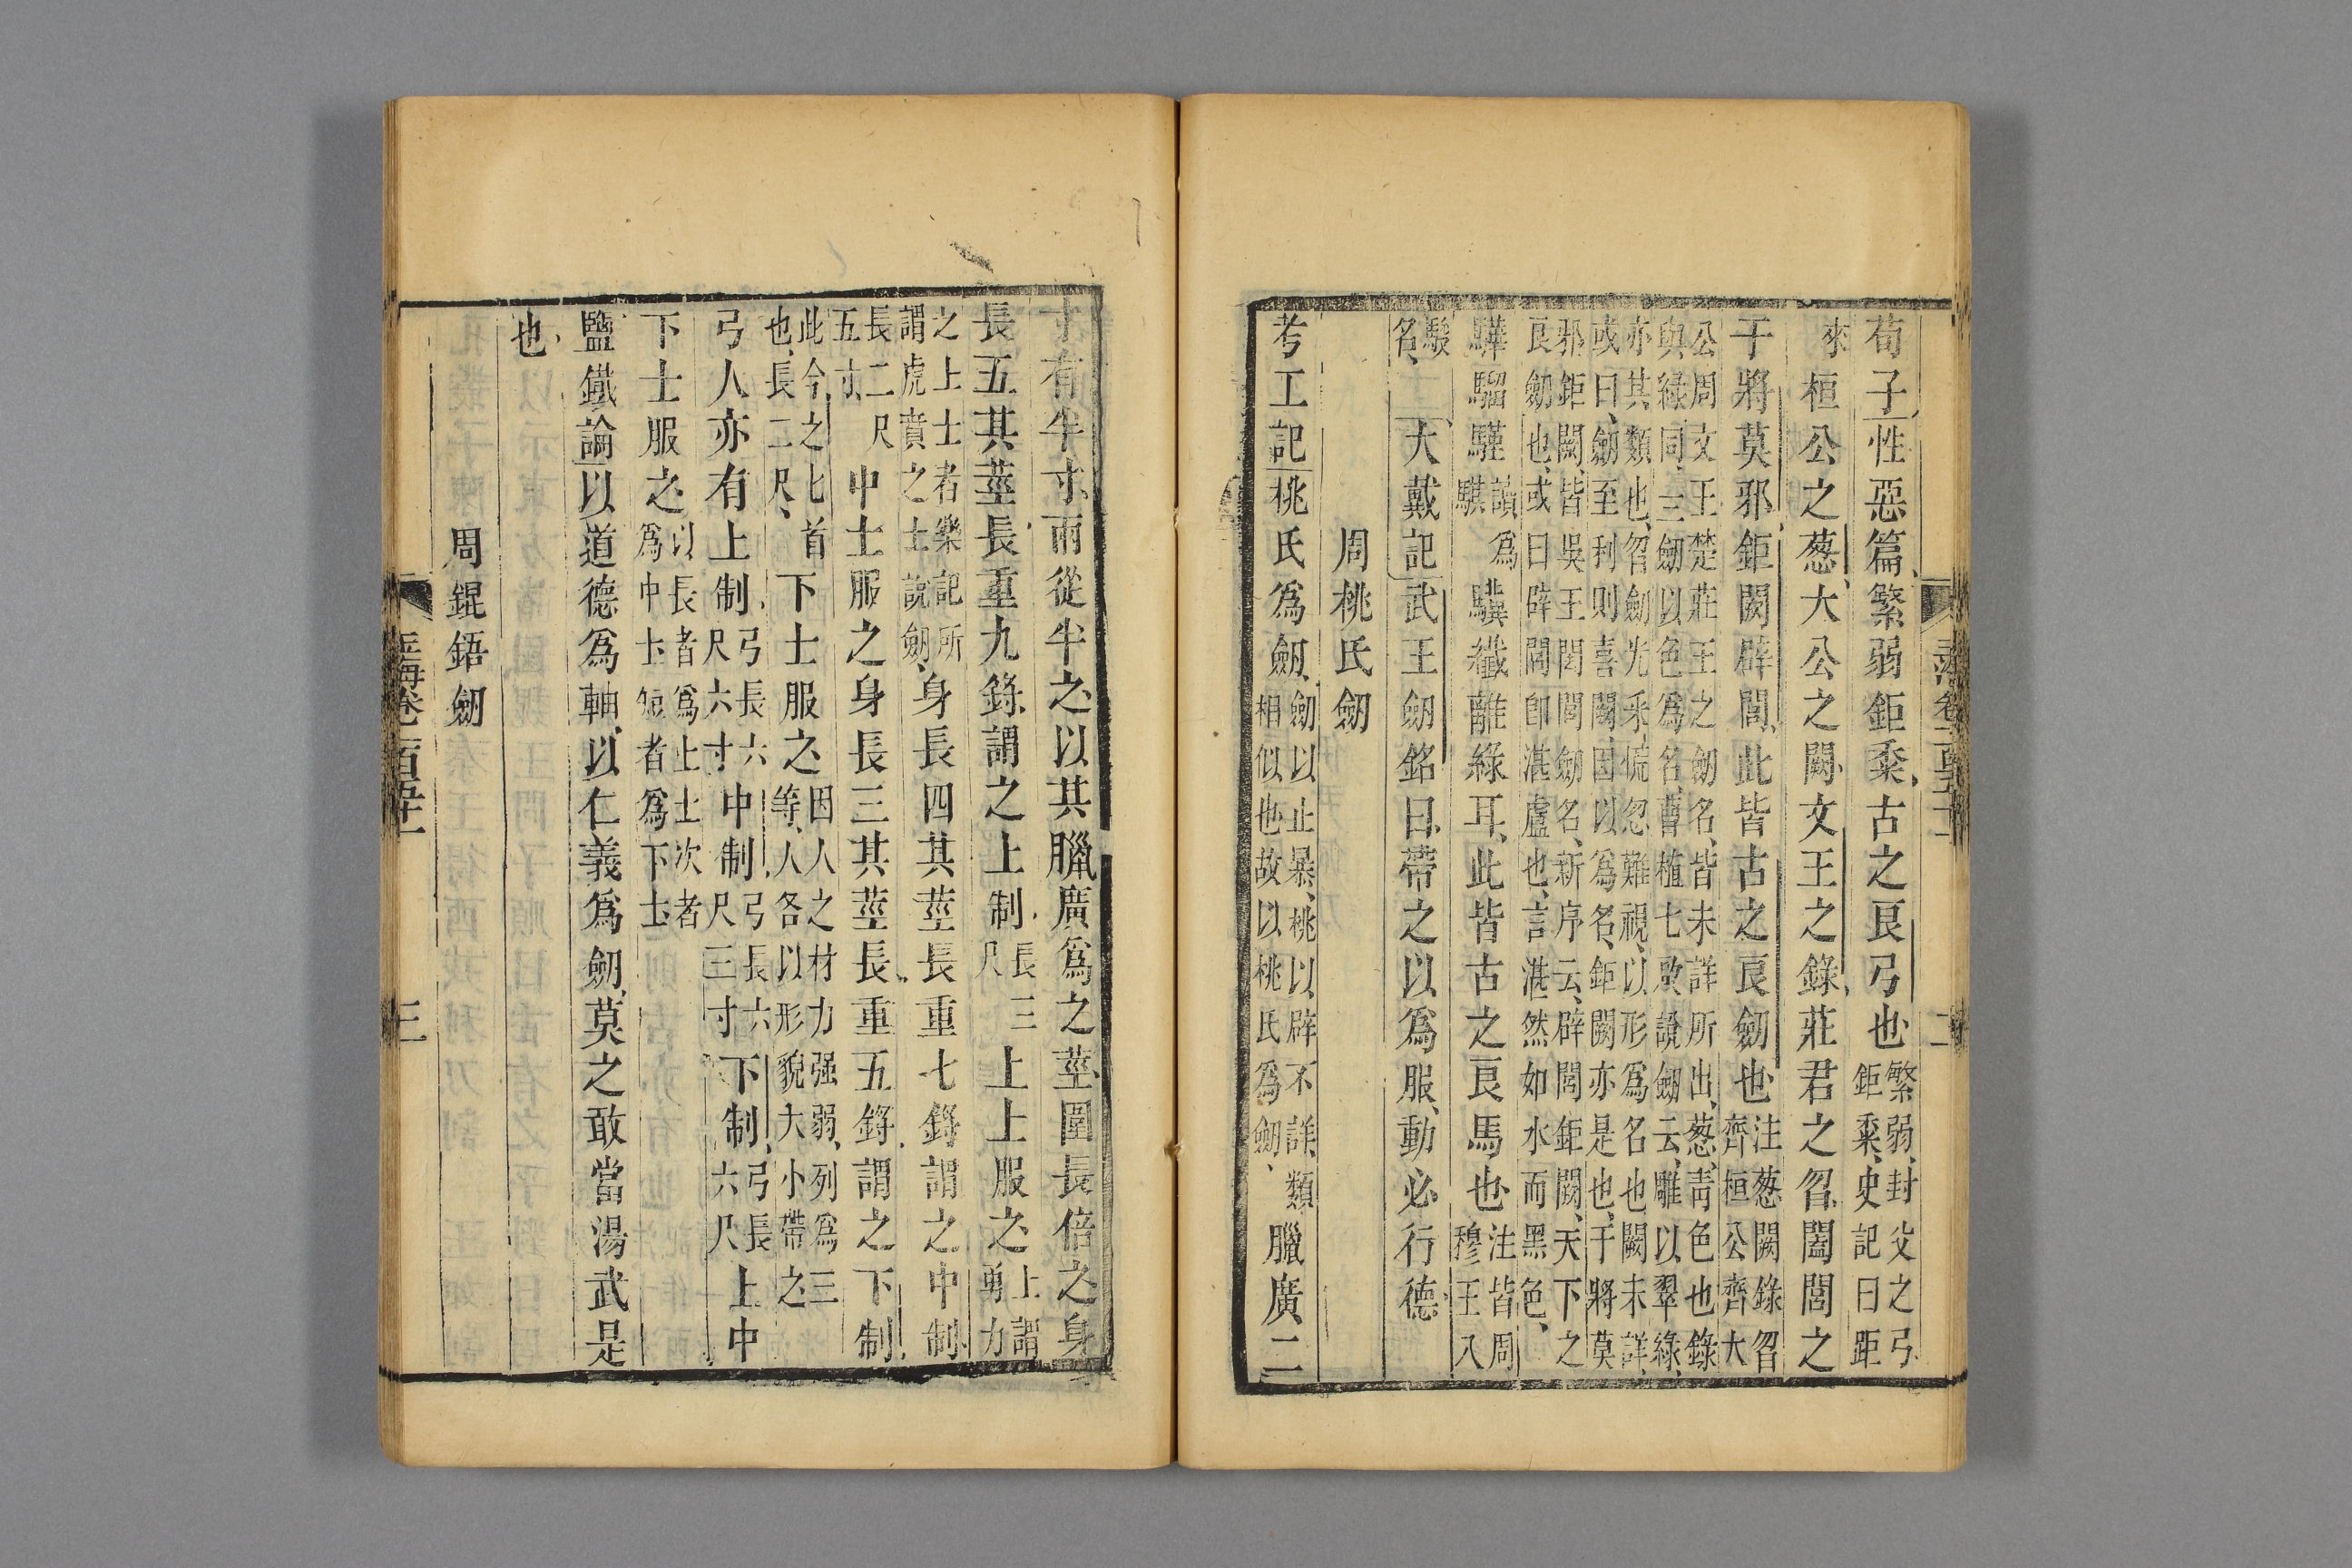 荀子性惡篇繁弱鉅黍古之良弓也繁弱封父之弓鉅黍史記曰距
來桓公之葱大公之闕文王之錄莊君之曶闔閭之
干將莫邪鉅闕辟閭此皆古之良劒也注葱闕錄曶齊桓公齊大
公周文王楚莊王之劒名皆未詳所出葱青色也錄與綠同三劒以色爲名曹植七啟說劒云雕以翠綠
亦其類也曶劒光采慌忽難視以形爲名也闕未詳或曰劒至利則喜闕因以爲名鉅闕亦是也干將莫
邪鉅闕皆吳王闔閭劒名新序云辟閭鉅闕天下之良劒也或曰辟閭卽湛盧也言湛然如水而黑色
驊騮騹驥讀爲騏纖離綠耳此皆古之良馬也注皆周穆王八
駿名大戴記武王劒銘曰帶之以爲服動必行德
周桃氏劒
考工記桃氏爲劒劒以止暴桃以辟不詳類相似也故以桃氏爲劒臘廣二
寸有半寸兩從半之以其臘廣爲之莖圍長倍之身
長五其莖長重九鋝謂之上制長三尺上士服之上謂勇力
之上士者樂記所謂虎賁之士說劒身長四其莖長重七鋝謂之中制
長二尺五寸中士服之身長三其莖長重五鋝謂之下制
此今之匕首也長二尺下士服之因人之材力强弱列爲三等人各以形貌大小帶之
弓人亦有上制弓長六尺六寸中制弓長六尺三寸下制弓長六尺上中
下士服之以長者爲上士次者爲中士短者爲下士
鹽鐵論以道德爲軸以仁義爲劒莫之敢當湯武是
也
周錕鋙劒
玉海卷一百五十一
三